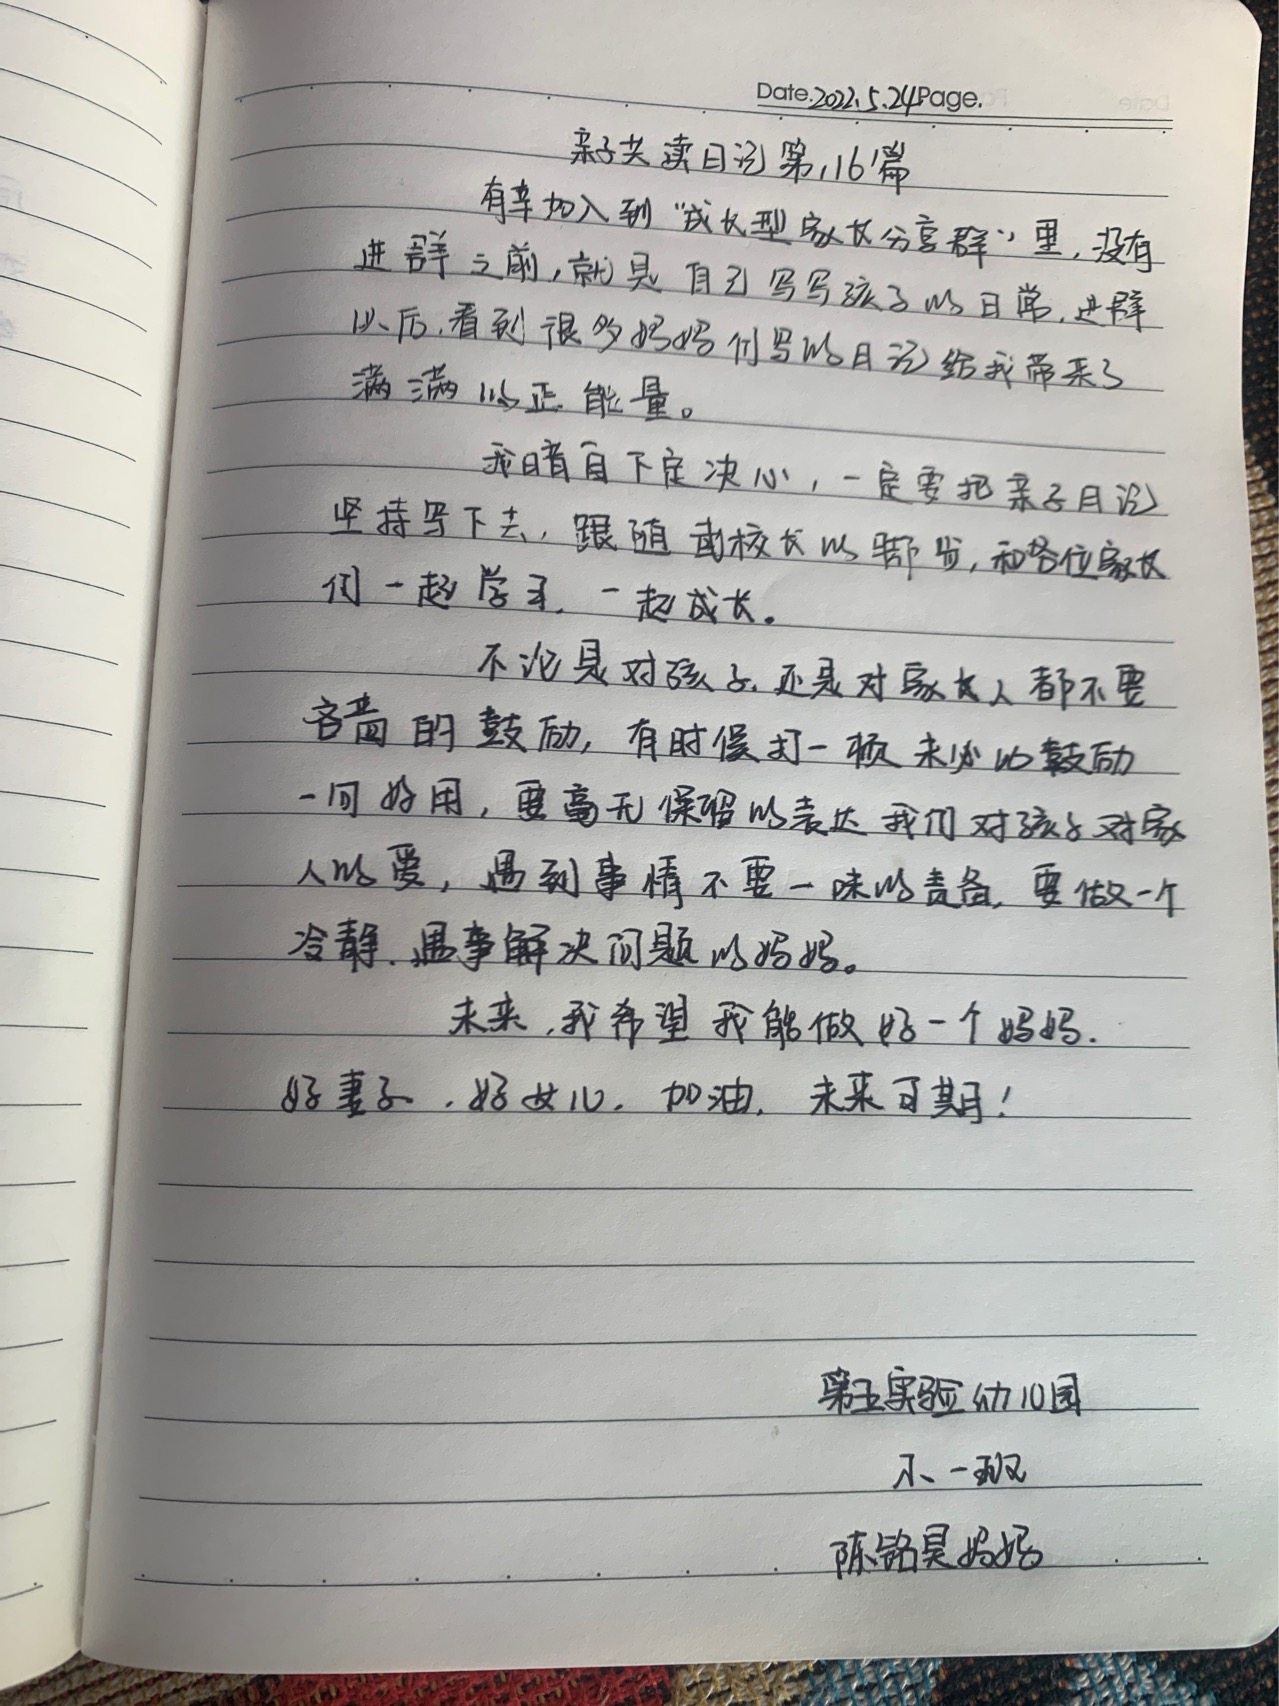 Date.2022.5.24Page.
亲子共读日记第16篇
有幸加入到“成长型家长分享群”里,没有
进群之前,就是自己写写孩子的日常,进群
以后,看到很多妈妈们写的日记给我带来了
满满的正能量。
我暗自下定决心,一定要把亲子日记
坚持写下去,跟随 校长的脚步,和各位家长
们一起学习,一起成长。
不论是对孩子,还是对家长人都不要
吝啬的鼓励,有时候打一顿未必的鼓励
一同好用,要毫无保留的表达我们对孩子对家
人的爱,遇到事情不要一味的责备,要做一个
冷静,遇事解决问题的妈妈。
未来,我希望我能做好一个妈妈.
好妻子,好女儿,加油,未来可期!
第五实验幼儿园
小一班
陈铭昊妈妈